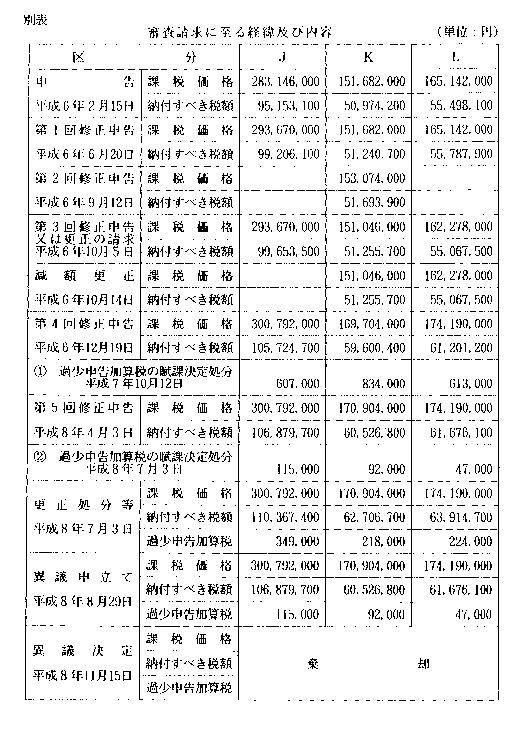 別表
審査請求に至る経緯及び内容 (単位：円)
区 分 J K L
申 告 課税価格 283,146,000 151,682,000 165,142,000
平成6年2月15日 納付すべき税額 95,153,100 50,974,200 55,498,100
第1回修正申告 課税価格 293,670,000 151,682,000 165,142,000
平成6年6月20日 納付すべき税額 99,206,100 51,240,700 55,787,900
第2回修正申告 課税価格 153,074,000
平成6年9月12日 納付すべき税額 51,693,900
第3回修正申告 課税価格 293,670,000 151,046,000 162,278,000
又は更正の請求
平成6年10月5日 納付すべき税額 99,653,500 51,255,700 55,067,500
減額更正 課税価格 151,046,000 162,278,000
平成6年10月14日 納付すべき税額 51,255,700 55,067,500
第4回修正申告 課税価格 300,792,000 169,704,000 174,190,000
平成6年12月19日 納付すべき税額 105,724,700 59,600,400 61,201,200
① 過少申告加算税の賦課決定処分
平成7年10月12日 607,000 834,000 613,000
第5回修正申告 課税価格 300,792,000 170,904,000 174,190,000
平成8年4月3日 納付すべき税額 106,879,700 60,526,800 61,676,100
② 過少申告加算税の賦課決定処分
平成8年7月3日 115,000 92,000 47,000
課税価格 300,792,000 170,904,000 174,190,000
更正処分等
納付すべき税額 110,367,400 62,706,700 63,914,700
平成8年7月3日
過少申告加算税 349,000 218,000 224,000
課税価格 300,792,000 170,904,000 174,190,000
異議申立て
納付すべき税額 106,879,700 60,526,800 61,676,100
平成8年8月29日
過少申告加算税 115,000 92,000 47,000
課税価格
異議決定
納付すべき税額 棄 却
平成8年11月15日
過少申告加算税